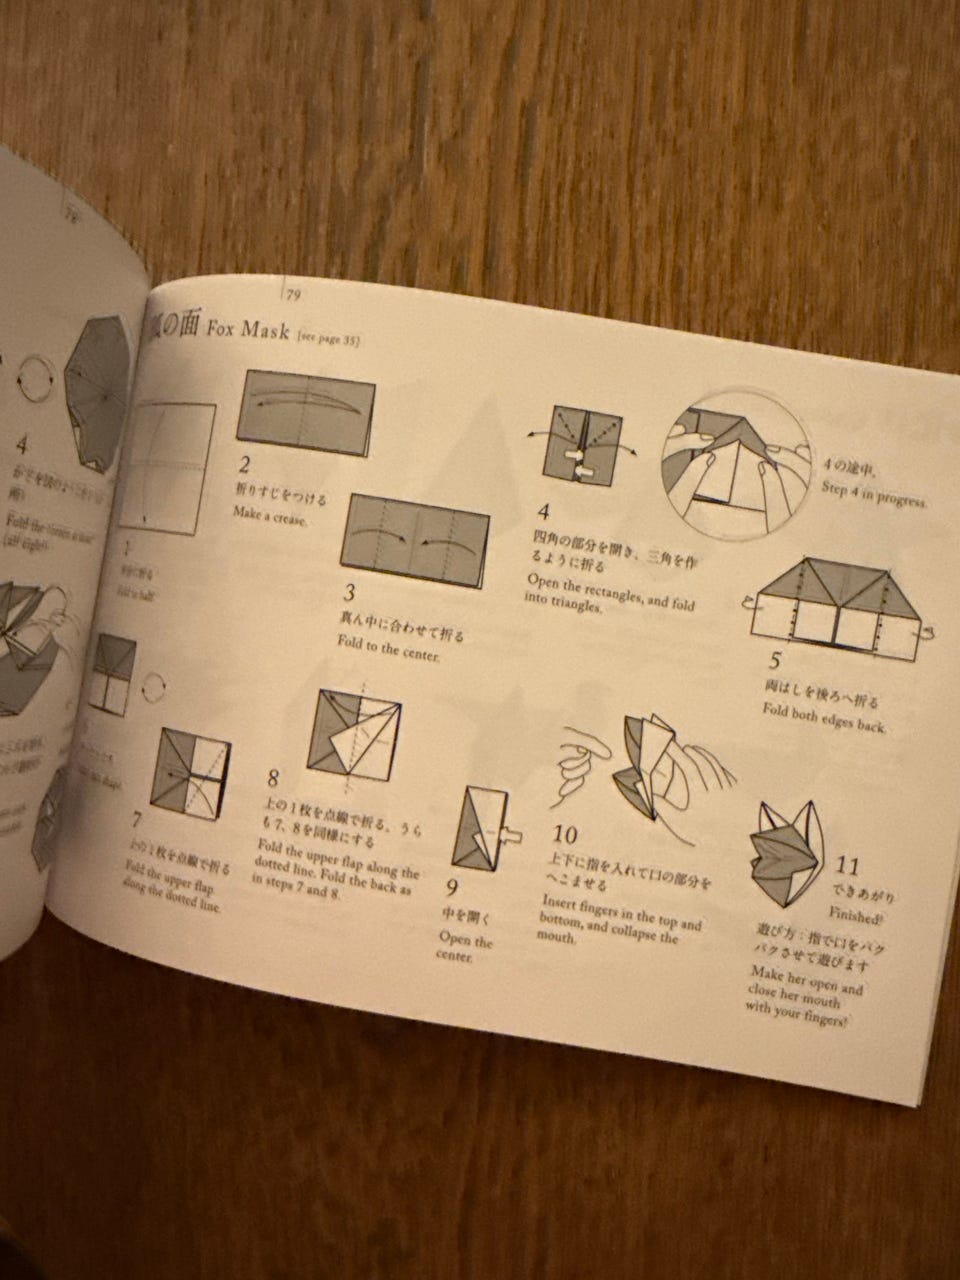 78
4
79
の面 Fox Mask [see page 35]
1
Fold in half.
2
折りすじをつける
Make a crease.
3
真ん中に合わせて折る
Fold to the center.
4
四角の部分を開き、三角を作
るように折る
Open the rectangles, and fold
into triangles.
4の途中。
Step 4 in progress.
5
両はしを後ろへ折る
Fold both edges back.
7
上の1枚を点線で折る
Fold the upper flap
along the dotted line.
8
上の1枚を点線で折る。うら
も7、8を同様にする
Fold the upper flap along the
dotted line. Fold the back as
in steps 7 and 8.
9
中を開く
Open the
center.
10
上下に指を入れて口の部分を
へこませる
Insert fingers in the top and
bottom, and collapse the
mouth.
11
できあがり
Finished!
遊び方：指で口をパク
パクさせて遊びます
Make her open and
close her mouth
with your fingers!